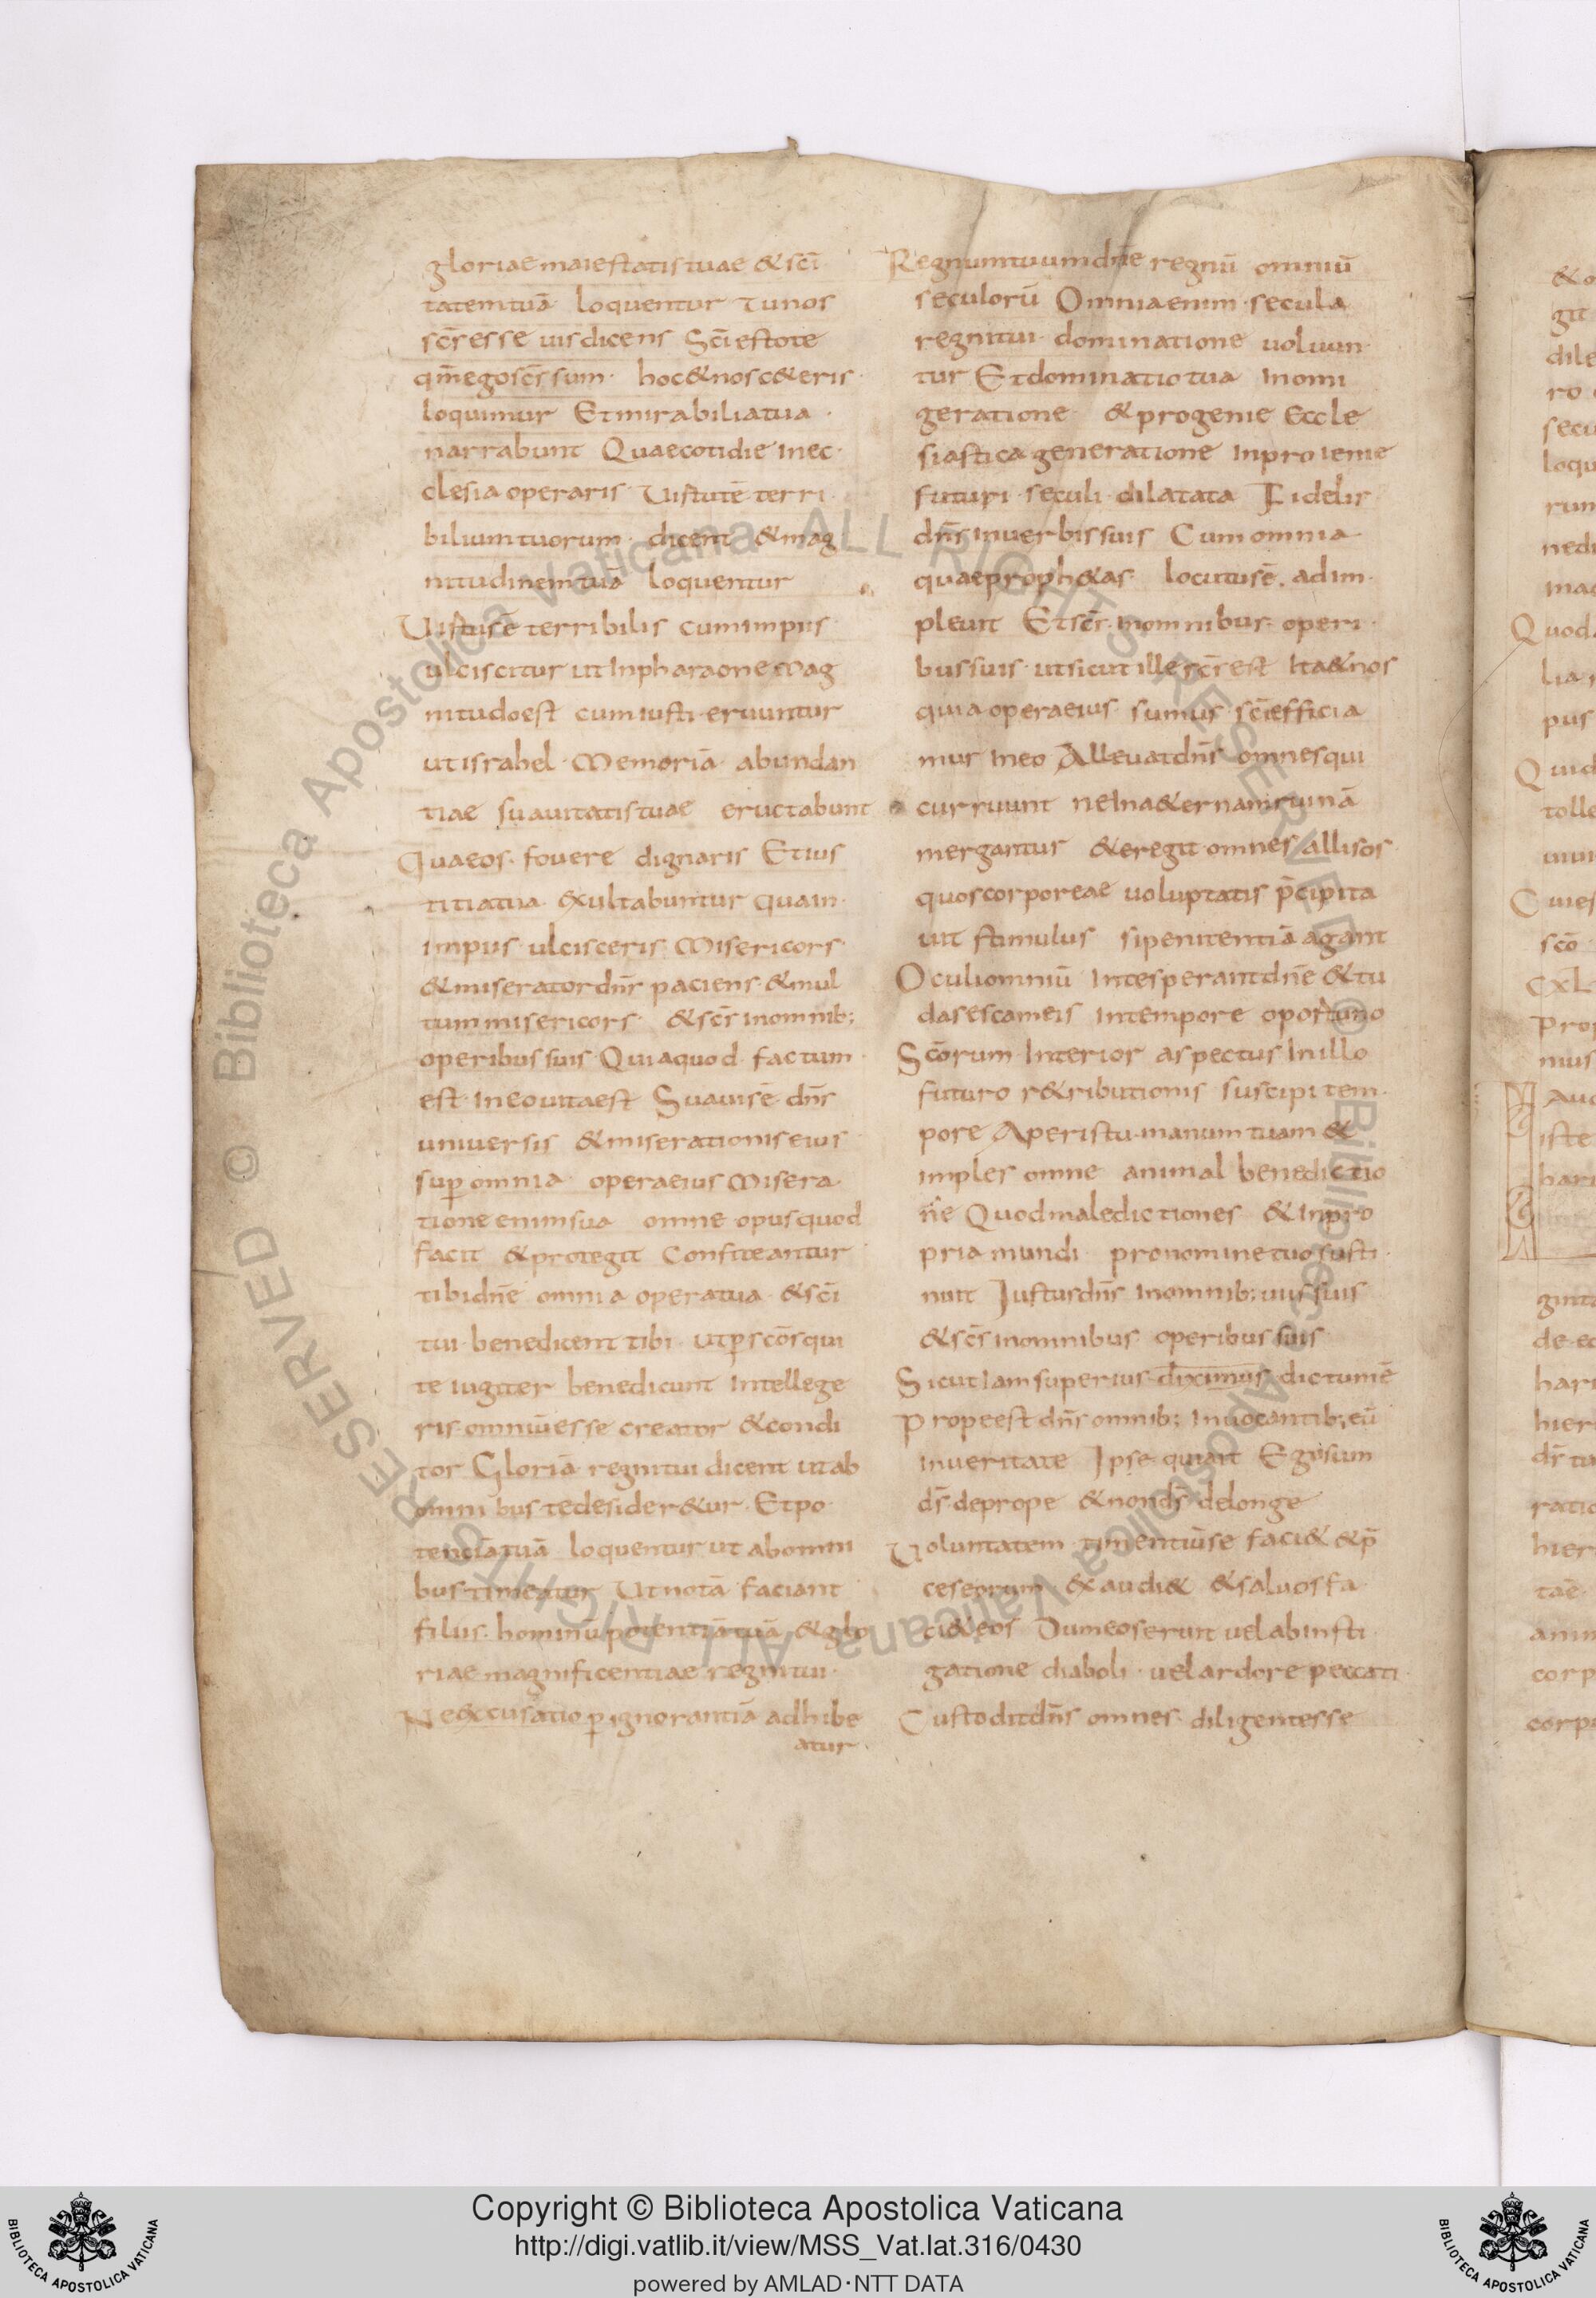 gloriae maiestatis tuae & sc̄i
tatem tuā loquentur Tu nos
sc̄s esse uis dicens Sc̄i estote
qm̄ ego sc̄s sum hoc & nos c&eris
loquimur Et mirabilia tua
narrabunt Quae cotidie in ec
clesia operaris Uirtutē terri
bilium tuorum dicent & mag
nitudinem tuā loquentur
Uirtus ē terribilis cum impiis
ulciscitur ut in pharaone Mag
nitudo est cum iusti eruuntur
ut israhel Memoriā abundan
tiae suauitatis tuae eructabunt
Quae os fouere dignaris Et ius
titia tua exultabuntur qua in
impiis ulcisceris Misericors
& miserator dn̄s paciens & mul
tum misericors & sc̄s in omnib;
operibus suis Quia quod factum
est in eo uita est Suauis ē dn̄s
uniuersis & miserationis eius
sup omnia opera eius Misera
tione enim sua omne opus quod
facit & protegit Confiteantur
tibi dn̄e omnia opera tua & sc̄i
tui benedicent tibi ut p sc̄os qui
te iugiter benedicunt intellege
ris omniū esse creator & condi
tor Gloriā regni tui dicent ut ab
omnibus te desider&ur Et po
tenciā tuā loquentur ut ab omni
bus timeatur Ut notā faciant
filiis hominū potentiā tuā & glo
riae magnificentiae regni tui
Ne excusatio p ignorantiā adhibe
atur
Regnum tuum dn̄e regnū omniū
seculorū Omnia enim secula
regni tui dominatione uoluun
tur Et dominatio tua in omi
geratione & progenie Eccle
siastica generatione in pro ienie
futuri seculi dilatata Fidelis
dn̄s in uerbis suis Cum omnia
quae proph&as locutus ē adim
pleuit Et sc̄s in omnibus operi
bus suis ut sicut ille sc̄s est Ita & nos
quia opera eius sumus sc̄i efficia
mur in eo Alleuat dn̄s omnes qui
curruunt ne in a&ernam ruinā
mergantur & eregit omnes allisos
quos corporeae uoluptatis p̄cipita
uit stimulus si penitentiā agant
Oculi omniū in te sperant dn̄e & tu
das escam eis in tempore oportuno
Sc̄orum interior aspectus in illo
futuro r&ributionis suscipi tem
pore Aperis tu manum tuam &
imples omne animal benedictio
ne Quod maledictiones & inpro
pria mundi pro nomine tuo susti
nuit Iustus dn̄s in omnib; uiis suis
& sc̄s in omnibus operibus suis
Sicut iam superius diximus dictum ē
Prope est dn̄s omnib; inuocantib; eū
in ueritate Ipse qui ait Ego sum
ds̄ de prope & non ds̄ de longe
Uoluntatem timentiū se faci& & p̄
ces eorum exaudi& & saluos fa
ci& eos Dum eos eruit uel ab insti
gatione diaboli uel ardore peccati
Custodit dn̄s omnes diligentes se
Copyright © Biblioteca Apostolica Vaticana
http://digi.vatlib.it/view/MSS_Vat.lat.316/0430
powered by AMLAD·NTT DATA